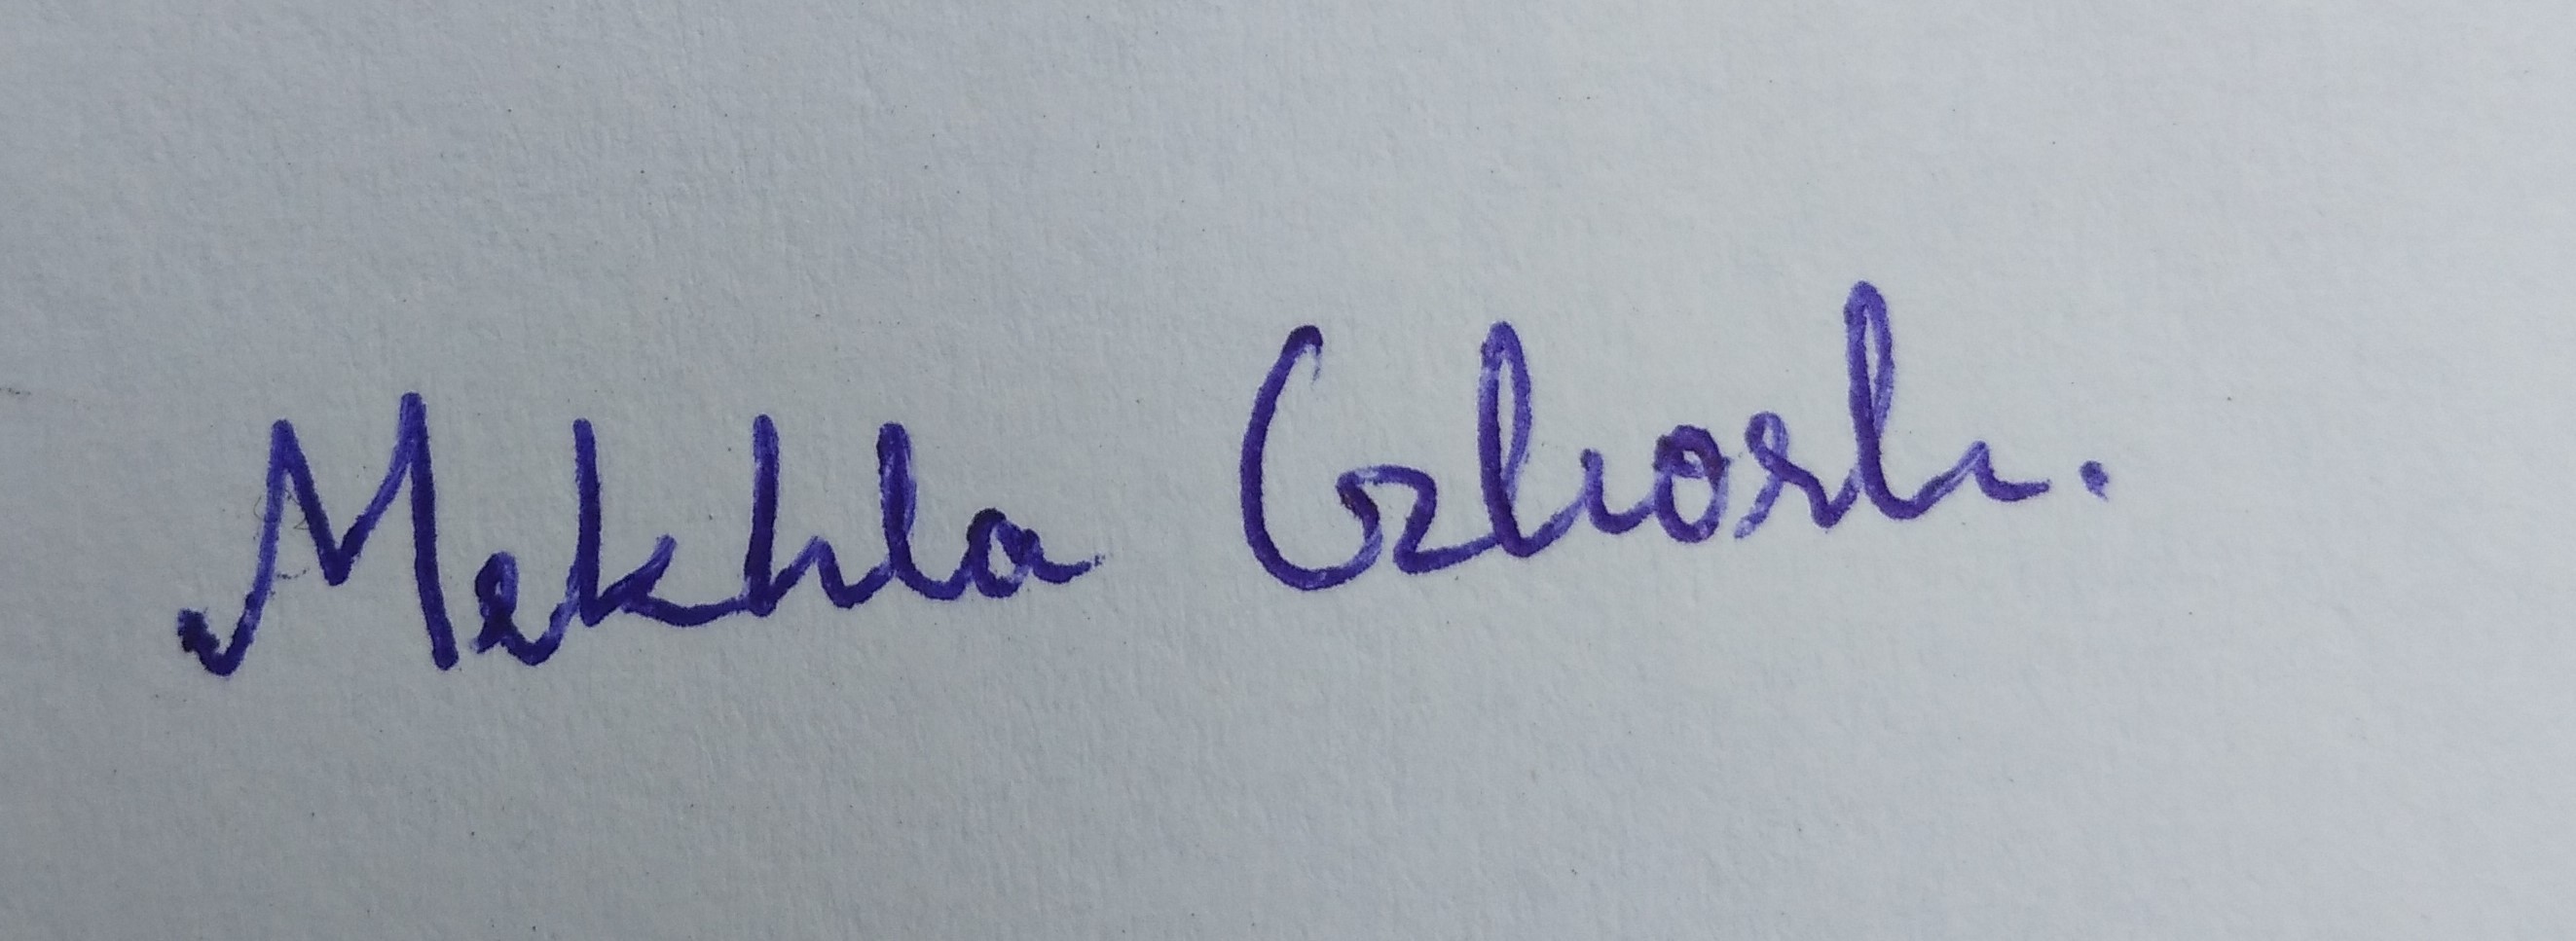 Mekhla Ghosh.